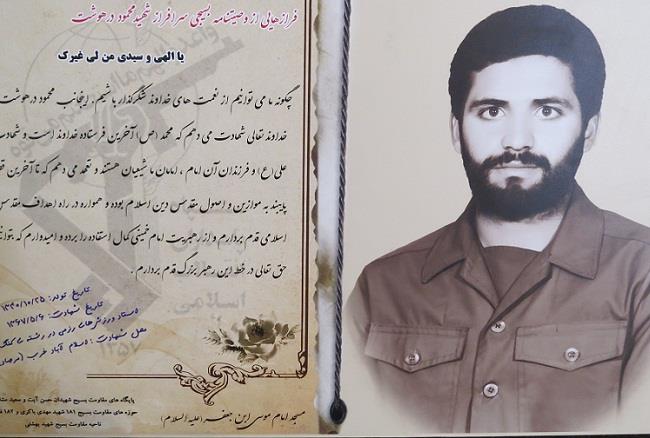 فرازهایی از وصیتنامه بسیجی سرافراز شهید محمود درهوشت
یا الهی و سیدی من لی غیرک
چگونه ما می توانیم از نعمت های خداوند شکرگذار باشیم. اینجانب محمود درهوشت
خداوند تعالی شهادت می دهم که محمد (ص) آخرین فرستاده خداوند است و شهادت
علی (ع) و فرزندان آن امام ، امامان ما شیعیان هستند و تعهد می دهم که تا آخرین
پایبند به موازین و اصول مقدس دین اسلام بوده و همواره در راه اهداف مقدس
اسلامی قدم بردارم و از رهبریت امام خمینی کمال استفاده را برده و امیدوارم که
حق تعالی در خط این رهبر بزرگ قدم بردارم .
اسلامی
۱۳۵۷
تاریخ تولد: ۱۳۴۰/۱۰/۲۵
تاریخ شهادت: ۱۳۶۷/۵/۶
ورزشهای رزمی در رشته
محل شهادت: اسلام آباد غرب
پایگاه های مقاومت بسیج شهیدان حسن آیت و سعید
حوزه های مقاومت بسیج ۱۸۱ شهید مهدی باکری و ۱۸۲
ناحیه مقاومت بسیج شهید بهشتی
مسجد امام موسی ابن جعفر (علیه السلام)